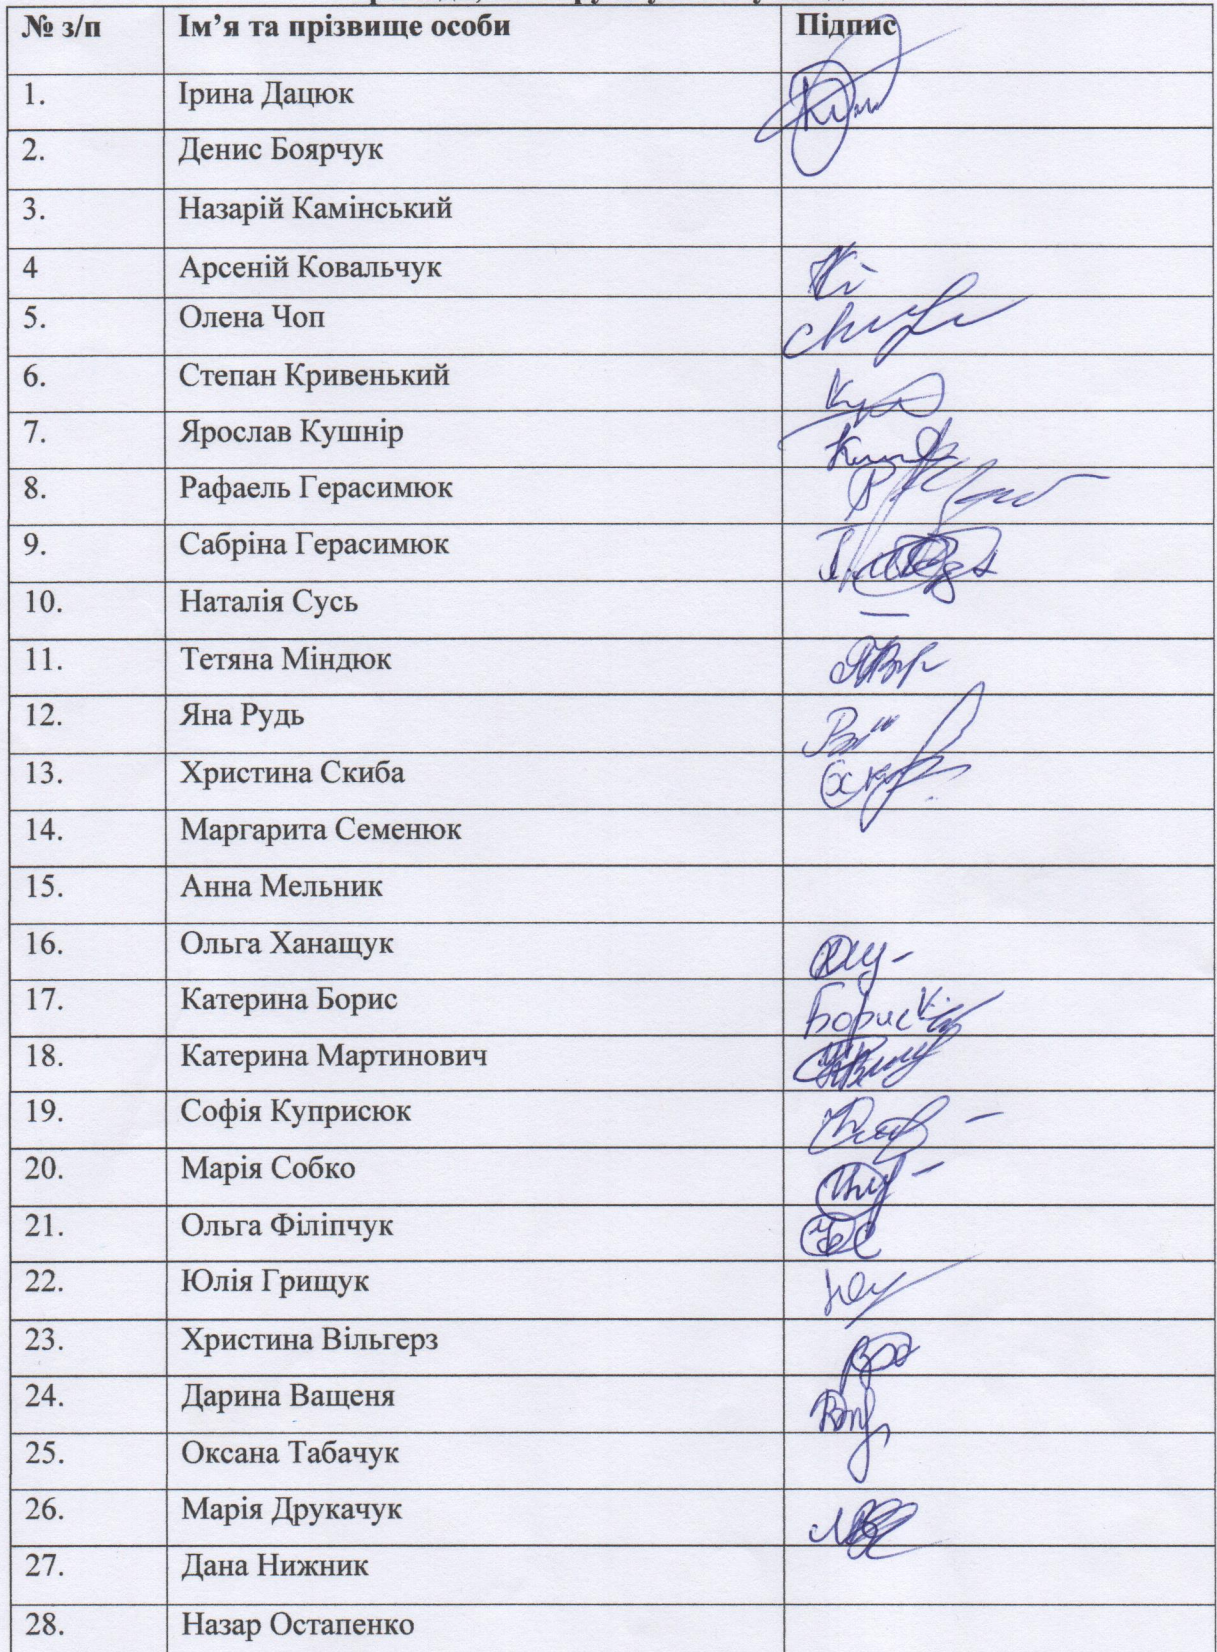 № з/п Ім’я та прізвище особи Підпис
1. Ірина Дацюк
2. Денис Боярчук
3. Назарій Камінський
4 Арсеній Ковальчук
5. Олена Чоп
6. Степан Кривенький
7. Ярослав Кушнір
8. Рафаель Герасимюк
9. Сабріна Герасимюк
10. Наталія Сусь —
11. Тетяна Міндюк
12. Яна Рудь
13. Христина Скиба
14. Маргарита Семенюк
15. Анна Мельник
16. Ольга Ханащук
17. Катерина Борис Борис К.
18. Катерина Мартинович
19. Софія Куприсюк
20. Марія Собко
21. Ольга Філіпчук
22. Юлія Грищук
23. Христина Вільгерз
24. Дарина Ващеня
25. Оксана Табачук
26. Марія Друкачук
27. Дана Нижник
28. Назар Остапенко